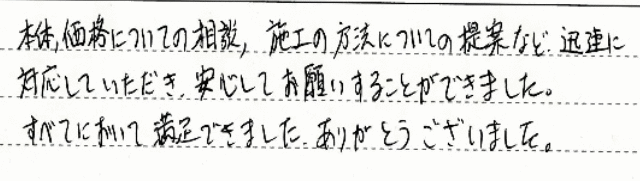 本体,価格についての相談, 施工の方法についての提案など、迅速に
対応していただき、安心してお願いすることができました。
すべてにおいて満足できました。ありがとうございました。